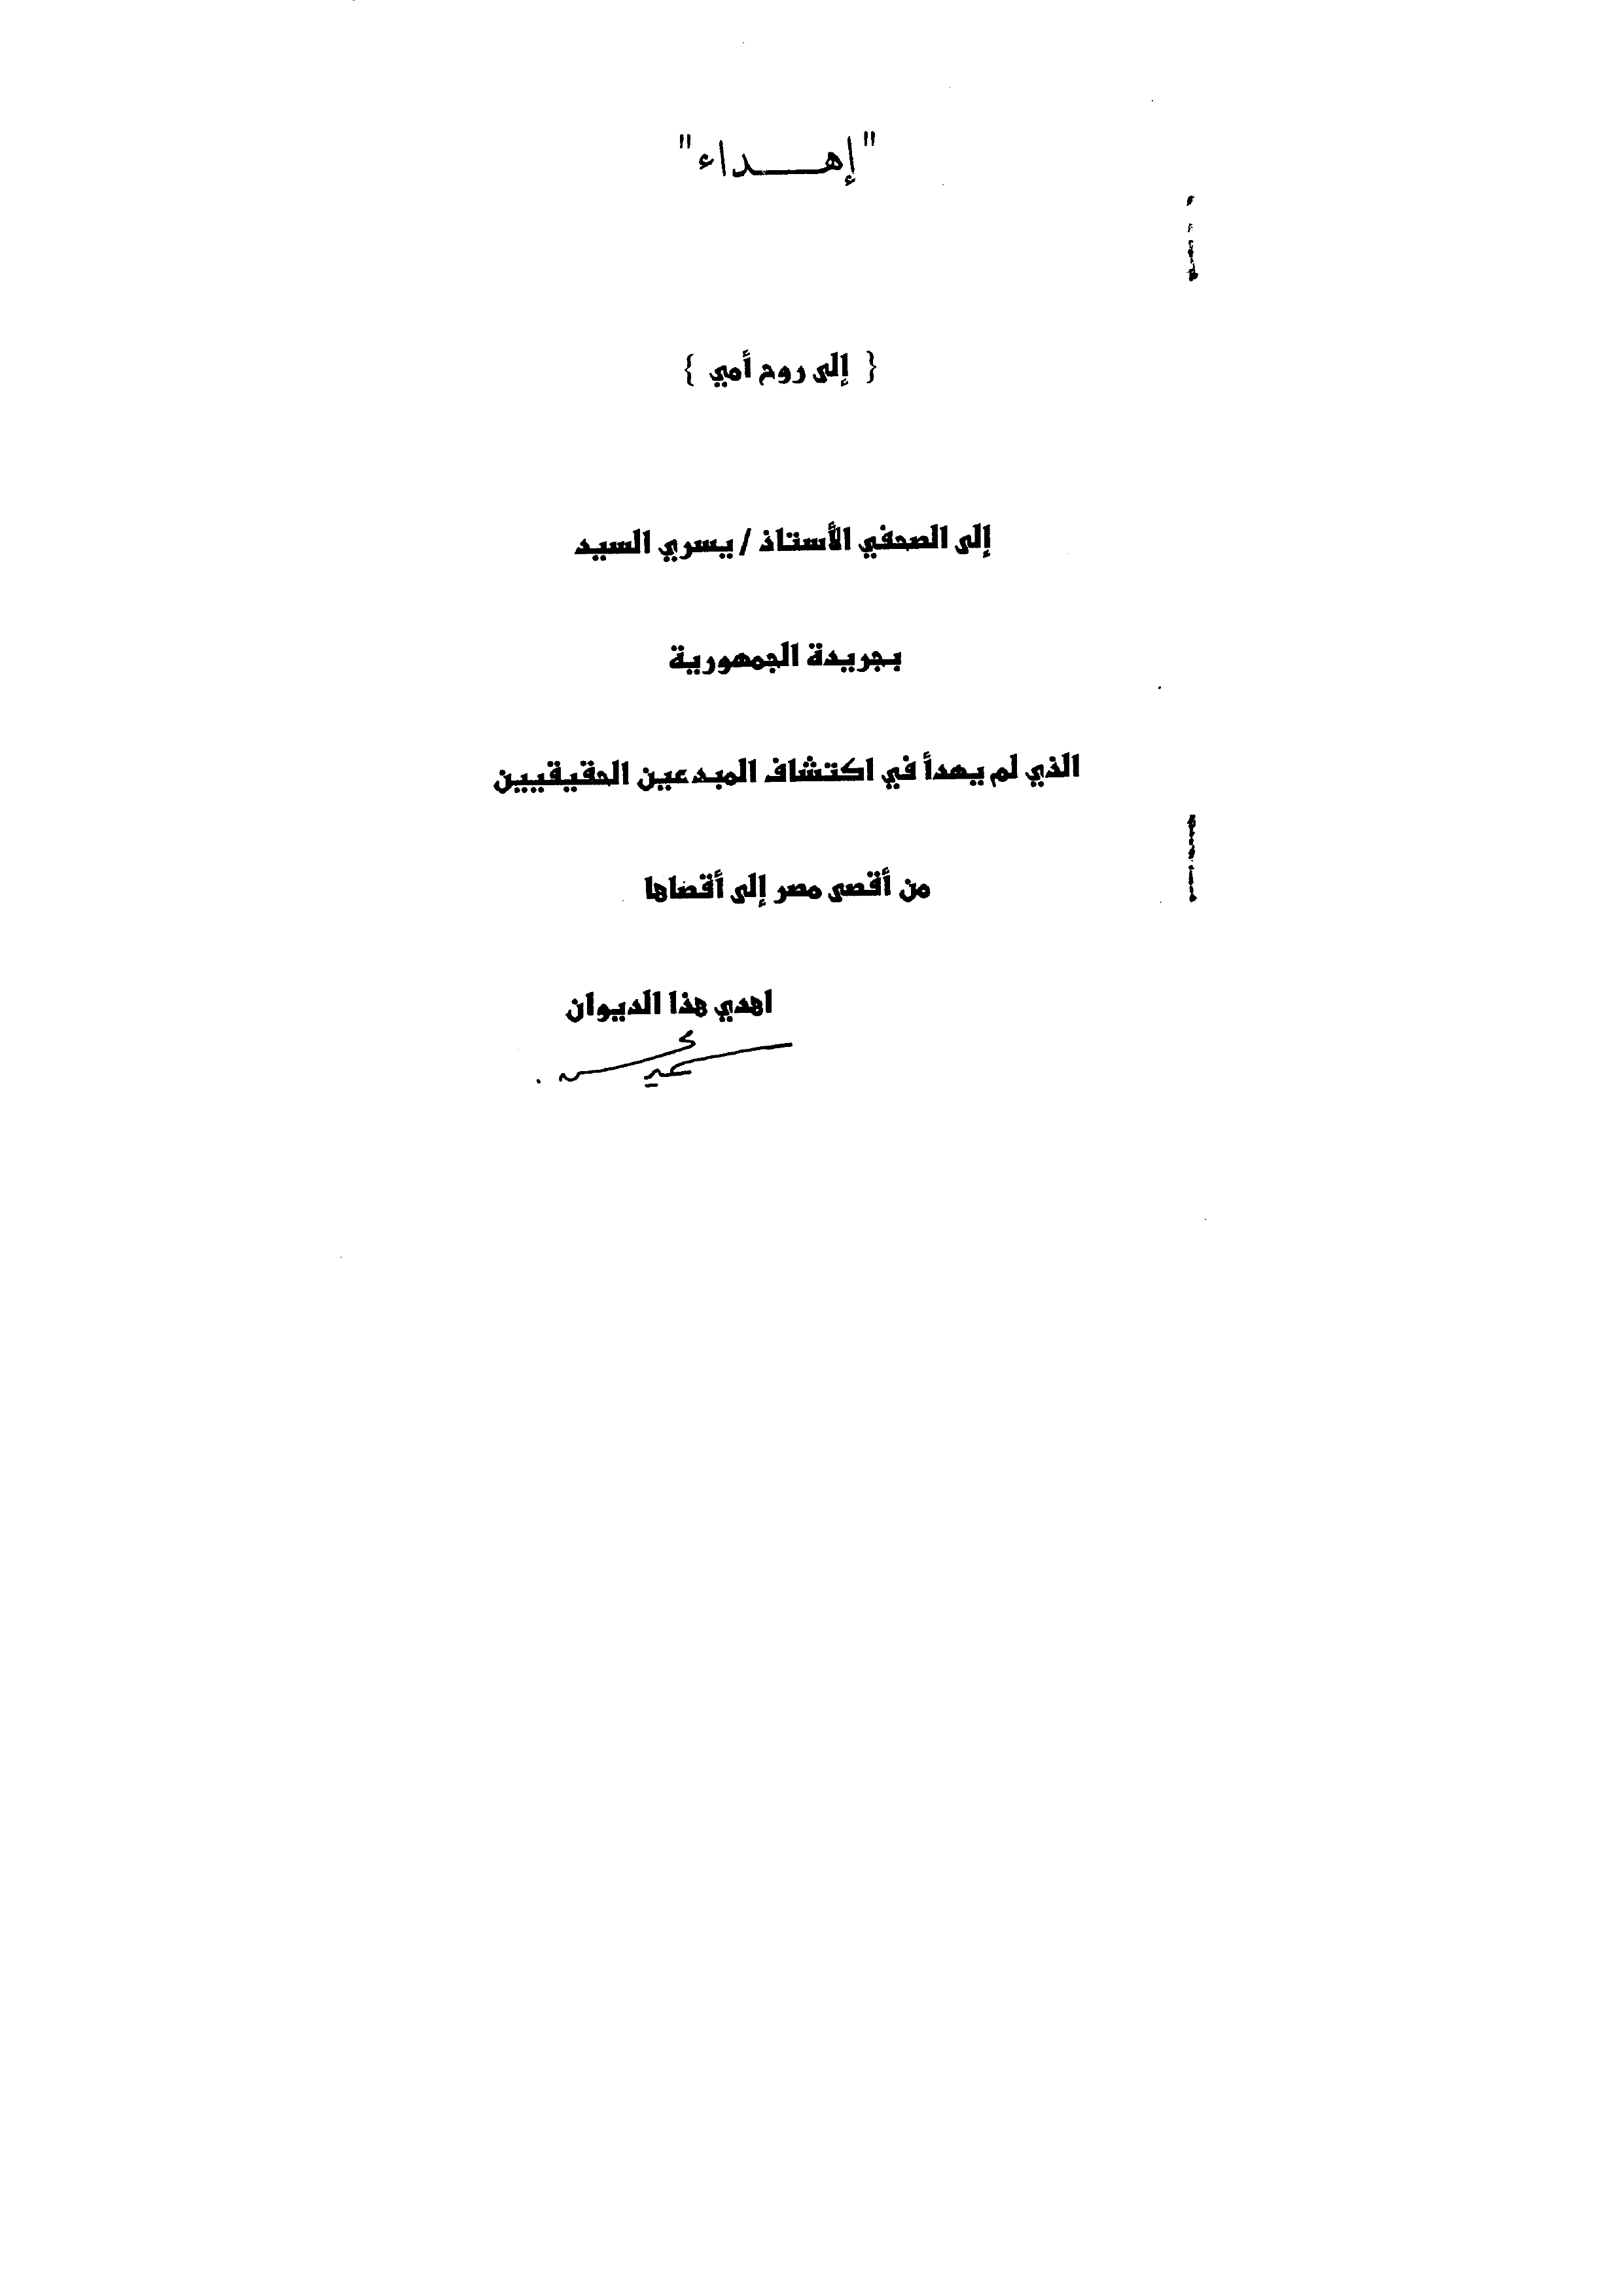 "إهـــداء"
{ إلى روح أمي }
إلى الصحفي الأستاذ / يسري السيد
بجريدة الجمهورية
الذي لم يهدأ في اكتشاف المبدعين الحقيقيين
من أقصى مصر إلى أقصاها
اهدي هذا الديوان